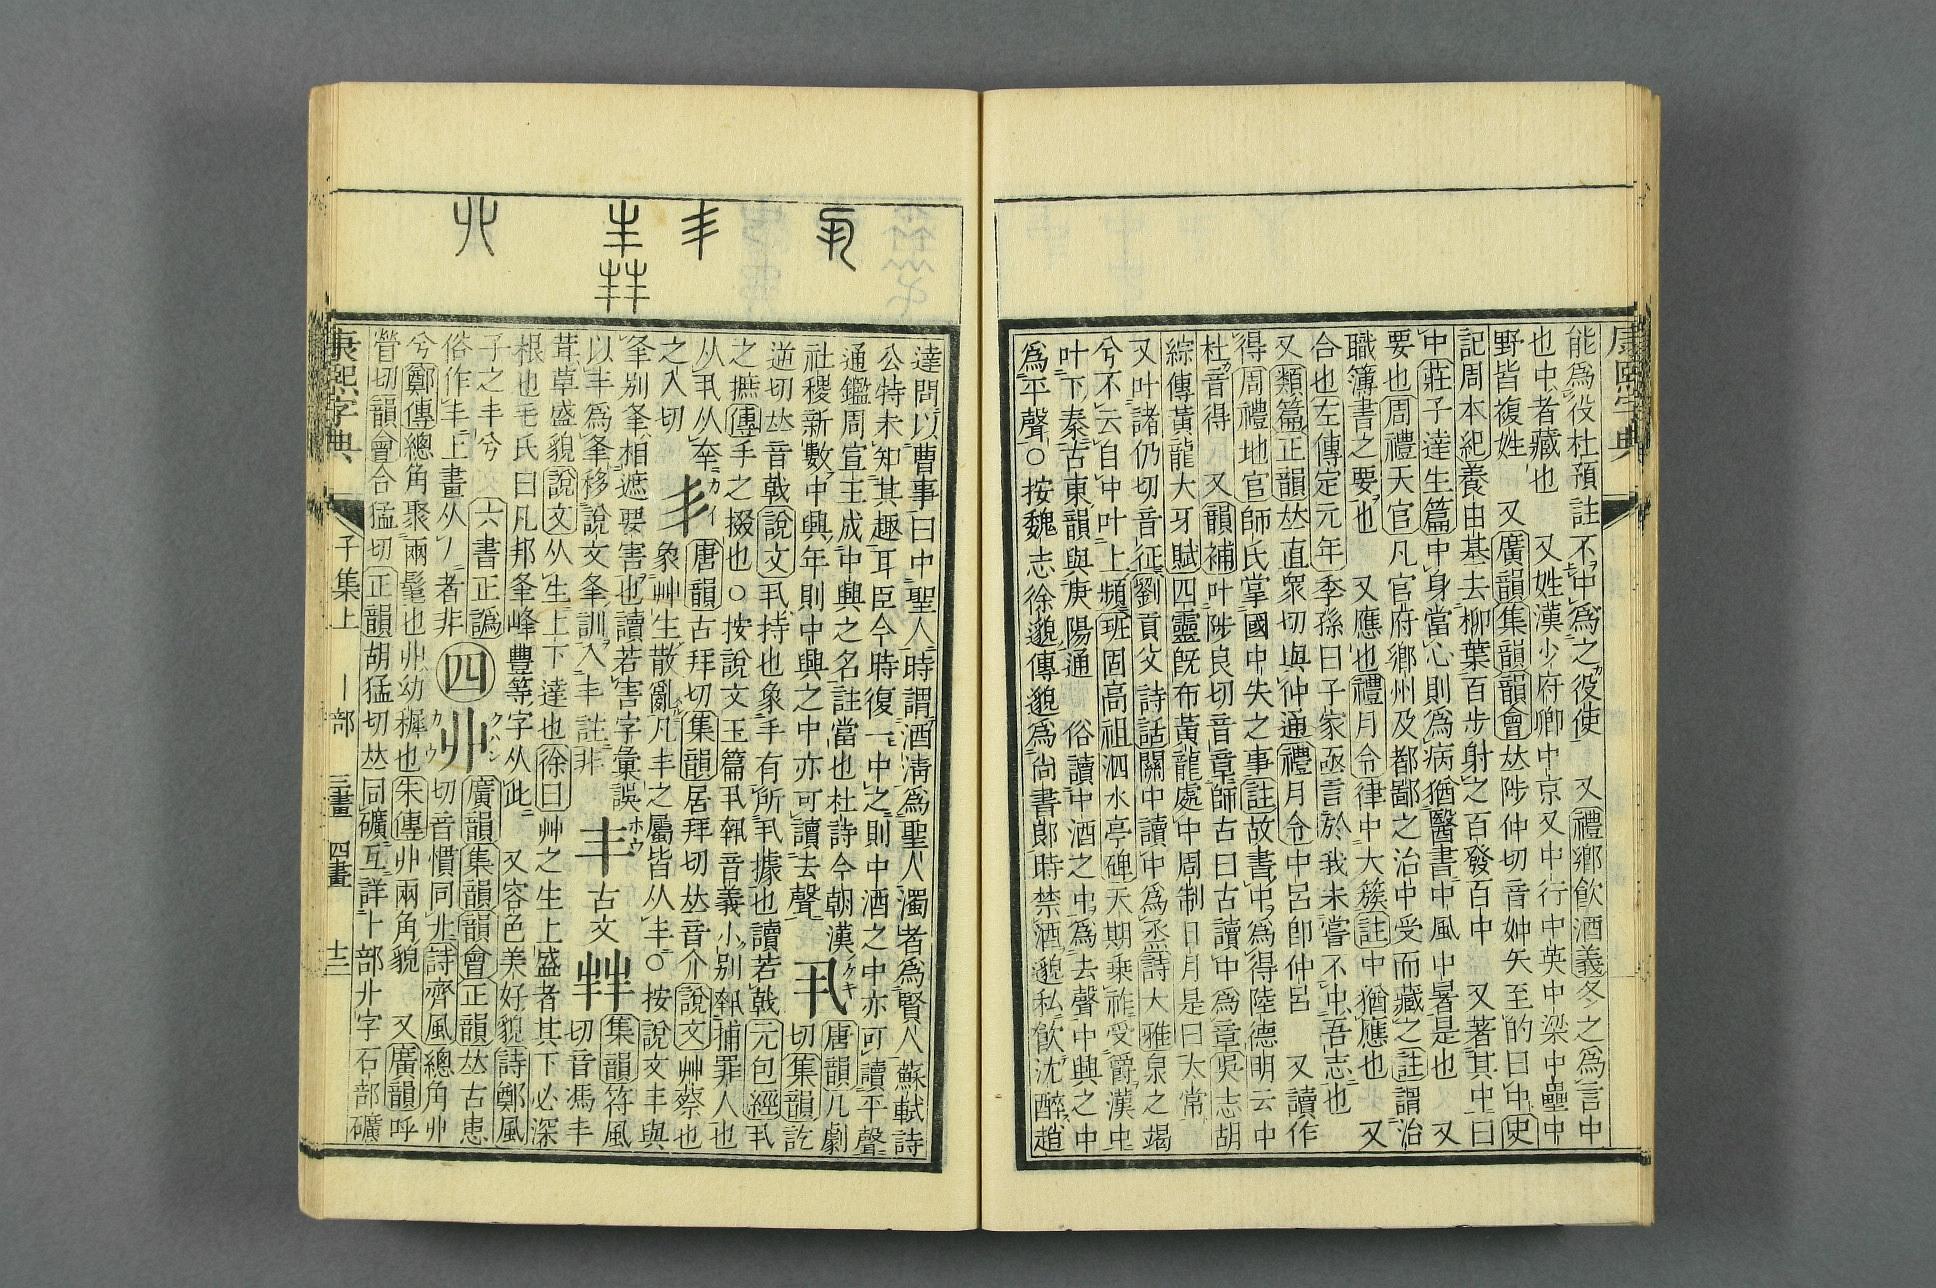 康熙字典
能爲役杜預註不中爲之役使 又禮鄉飲酒義冬之爲言中
也中者藏也 又姓漢少府卿中京又中行中英中梁中壘中
野皆複姓 又廣韻集韻韻會𠀤陟仲切音妕矢至的曰中史
記周本紀養由基去柳葉百步射之百發百中 又著其中曰
中莊子達生篇中身當心則爲病猶醫書中風中暑是也 又
要也周禮天官凡官府鄉州及都鄙之治中受而藏之註謂治
職簿書之要也 又應也禮月令律中大簇註中猶應也 又
合也左傳定元年季孫曰子家亟言於我未嘗不中吾志也
又類篇正韻𠀤直衆切與仲通禮月令中呂卽仲呂 又讀作
得周禮地官師氏掌國中失之事註故書中爲得陸德明云中
杜音得 又韻補叶陟良切音章師古曰古讀中爲章吳志胡
綜傳黃龍大牙賦四靈旣布黃龍處中周制日月是曰太常
又叶諸仍切音征劉貢父詩話關中讀中爲烝詩大雅泉之竭
兮不云自中叶上頻班固高祖泗水亭碑天期乘祚受爵漢中
叶下秦古東韻與庚陽通 俗讀中酒之中爲去聲中興之中
爲平聲○按魏志徐邈傳邈爲尙書郞時禁酒邈私飮沈醉趙
達問以曹事曰中聖人時謂酒淸爲聖人濁者爲賢人蘇軾詩
公特未知其趣耳臣今時復一中之則中酒之中亦可讀平聲
通鑑周宣王成中興之名註當也杜詩今朝漢
社稷新數中興年則中興之中亦可讀去聲
丮
唐韻几劇
切集韻訖
逆切𠀤音戟說文丮持也象手有所丮據也讀若戟元包經丮
之摭傳手之掇也○按說文玉篇丮𠨘音義小別𠨘捕罪人也
从丮从㚔
之入切
丯
唐韻古拜切集韻居拜切𠀤音介說文艸蔡也
象艸生散亂凡丯之屬皆从丯○按說文丯與
夆別夆相遮要害也讀若害字彙誤
以丯爲夆移說文夆訓入丯註非
丰
古文
𠁳
集韻符風
切音馮丰
茸草盛貌說文从生上下達也徐曰艸之生上盛者其下必深
根也毛氏曰凡邦夆峰豐等字从此 又容色美好貌詩鄭風
子之丰兮 六書正譌
俗作丰上畫从丿者非
四
丱
廣韻集韻韻會正韻𠀤古患
切音慣同卝詩齊風總角丱
兮鄭傳總角聚兩髦也丱幼穉也朱傳丱兩角貌 又廣韻呼
營切韻會合猛切正韻胡猛切𠀤同礦互詳卜部卝字石部礦
康熙字典
子集上 丨部 三畫 四畫 十二